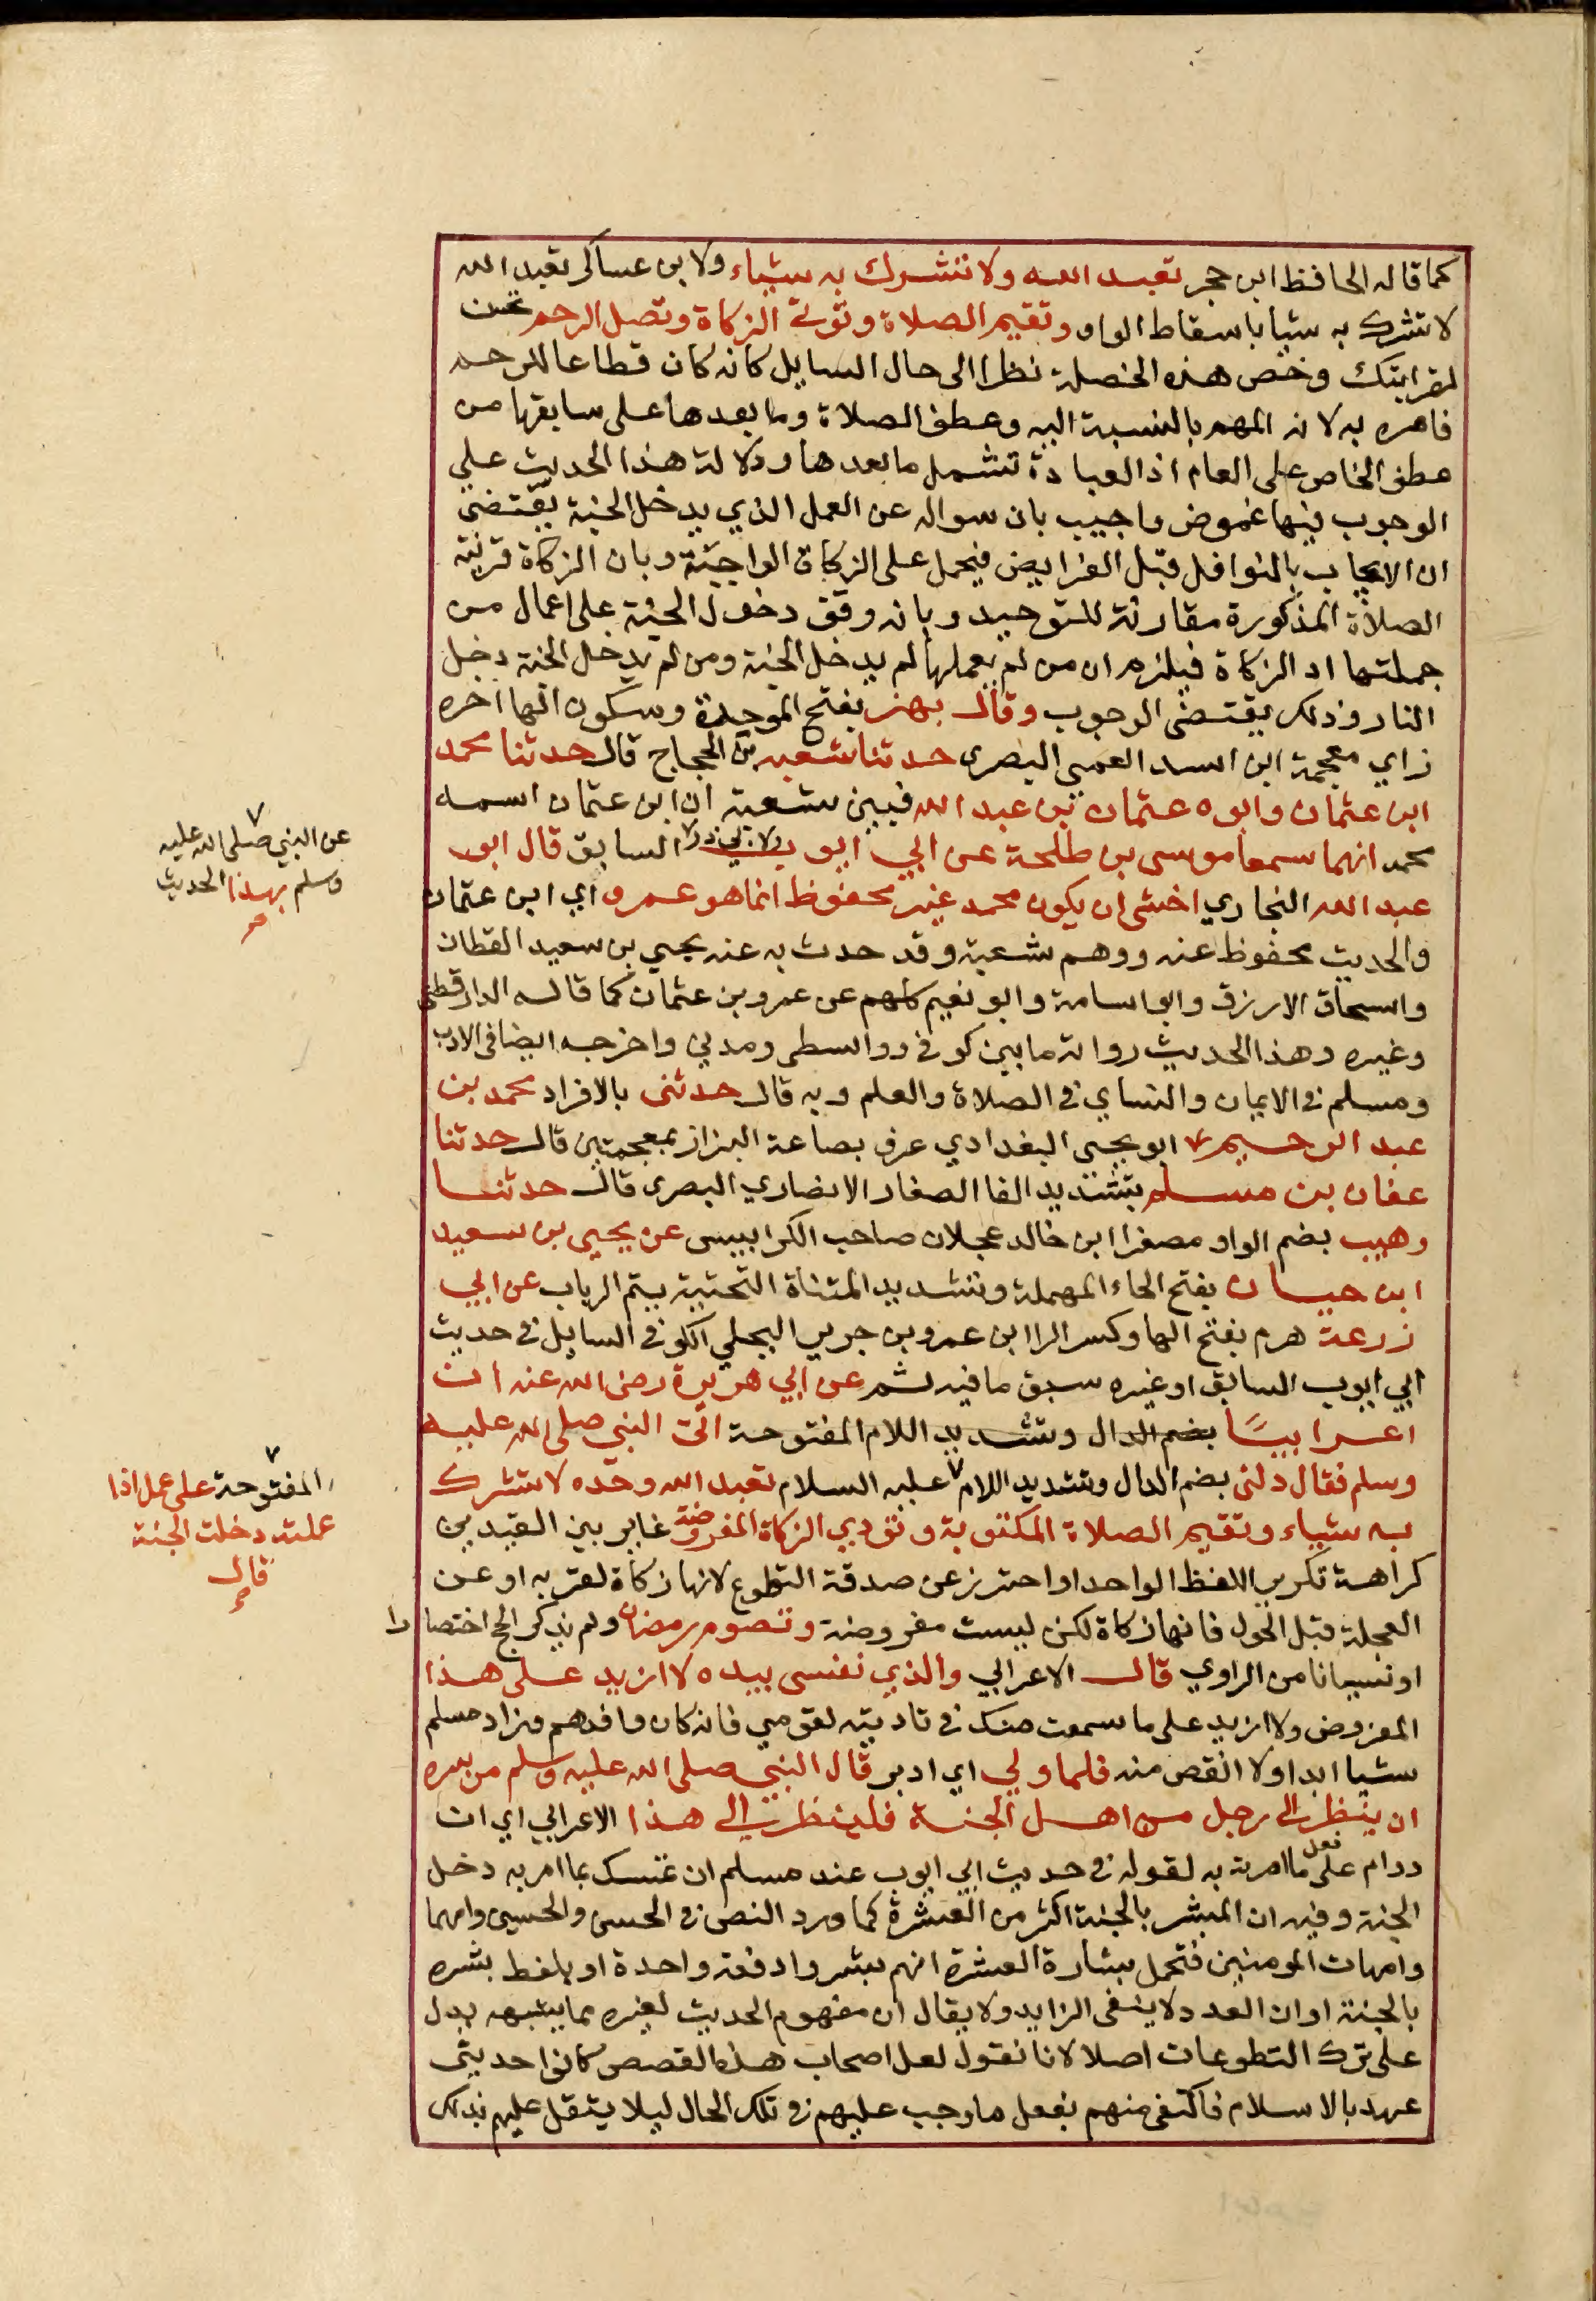 كما قاله الحافظ ابن حجر تعبد الله ولا تشرك به شياء ولابن عساكر تعبد الله
لا تشرك به شيا باسقاط الواو وتقيم الصلاة وتوتي الزكاة وتصل الرحم تحسن
لقرابتك وخص هذه الخصلة نظرا الى حال السايل كانه كان قطاعا للرحم
فامره به لانه المهم بالنسبة اليه وعطف الصلاة وما بعدها على سابقها من
عطف الخاص على العام اذ العبادة تشمل ما بعدها ودلالة هذا الحديث على
الوجوب فيها غموض واجيب بان سواله عن العمل الذي يدخل الجنة يقتضى
ان لا يجاب بالنوافل قبل الفرايض فيحمل على الزكاة الواجبة وبان الزكاة قرينة
الصلاة المذكورة مقارنة للتوحيد وبانه وقف دخول الجنة على اعمال من
جملتها اد الزكاة فيلزم ان من لم يعملها لم يدخل الجنة ومن لم يدخل الجنة دخل
النار وذلك يقتضى الوجوب وقال بهز بفتح الموحدة وسكون الها اخره
زاي معجمة ابن اسد العمي البصرى حدثنا شعبه بن الحجاج قال حدثنا محمد
ابن عثمان وابوه عثمان بن عبد الله فبين شعبة ان ابن عثمان اسمه
محمد انهما سمعا موسى بن طلحة عن ابي ايوب ولابي ذر السابق قال ابو
عبد الله البخاري اخشى ان يكون محمد غير محفوظ انما هو عمرو اي ابن عثمان
والحديث محفوظ عنه ووهم شعبة وقد حدث به عنه يحيى بن سعيد القطان
واسحاق الازرق وابو اسامة وابو نعيم كلهم عن عمرو بن عثمان كما قاله الدارقطنى
وغيره وهذا الحديث رواته ما بين كوفى وواسطى ومدني واخرجه ايضا فى الادب
ومسلم فى الايمان والنساي فى الصلاة والعلم وبه قال حدثنى بالافراد محمد بن
عبد الرحيم ابو يحيى البغدادي عرف بصاعة البزاز بمعجمتين قال حدثنا
عفان بن مسلم بتشديد الفا الصفار الانصاري البصرى قال حدثنا
وهيب بضم الواو مصغرا ابن خالد عجلان صاحب الكرابيسى عن يحيى بن سعيد
ابن حيان بفتح الحاء المهملة وتشديد المثناة التحتية بيتم الرباب عن ابي
زرعة هرم بفتح الها وكسر الرا ابن عمرو بن جرير البجلي الكوفى السايل فى حديث
ابي ايوب السابق او غيره سبق ما فيه لشم عن ابي هريرة رضى الله عنه ان
اعرابيًا بضم الدال وتشديد اللام المفتوحة اتى النبي صلى الله عليه
وسلم فقال دلنى بضم الدال وتشديد اللام ٧ عليه السلام تعبد الله وحده لا تشرك
به شياء وتقيم الصلاة المكتوبة وتودي الزكاة المفروضة غاير بين القيدين
كراهة تكرير اللفظ الواحد او احترز عن صدقة التطوع لانها زكاة لغويه او عن
العجلة قبل الحول فانها زكاة لكن ليست مفروضة وتصوم رمضان ولم يذكر الحج اختصارا
او نسيانا من الراوي قال الاعرابي والذي نفسى بيده لا ازيد على هذا
المفروض ولا ازيد على ما سمعت منك فى تاديته لقومي فانه كان وافدهم وزاد مسلم
شيا ابدا ولا انقص منه فلما ولي اي ادبر قال النبي صلى الله عليه وسلم من سره
ان ينظر الى رجل من اهل الجنة فلينظر الى هذا الاعرابي اي ان
دوام على فعل ما امرته به لقوله فى حديث ابي ايوب عند مسلم ان تمسك بما امر به دخل
الجنة وفيه ان المبشر بالجنة اكثر من العشرة كما ورد النص فى الحسن والحسين وامهما
وامهات المومنين فتحمل بشارة العشرة انهم بشروا دفعة واحدة او بلفظ بشره
بالجنة او ان العدد لا ينفى الزايد ولا يقال ان مفهوم الحديث لغيره مما يشبهه يدل
على ترك التطوعات اصلا لانا نقول لعل اصحاب هذه القصص كانوا حديثى
عهد بالاسلام فاكتفى منهم بفعل ما وجب عليهم فى تلك الحال ليلا يثقل عليهم ذلك
٧
عن النبي صلى الله عليه
وسلم بهذا الحديث
٧
المفتوحة على عمل اذا
عملته دخلت الجنة
قال